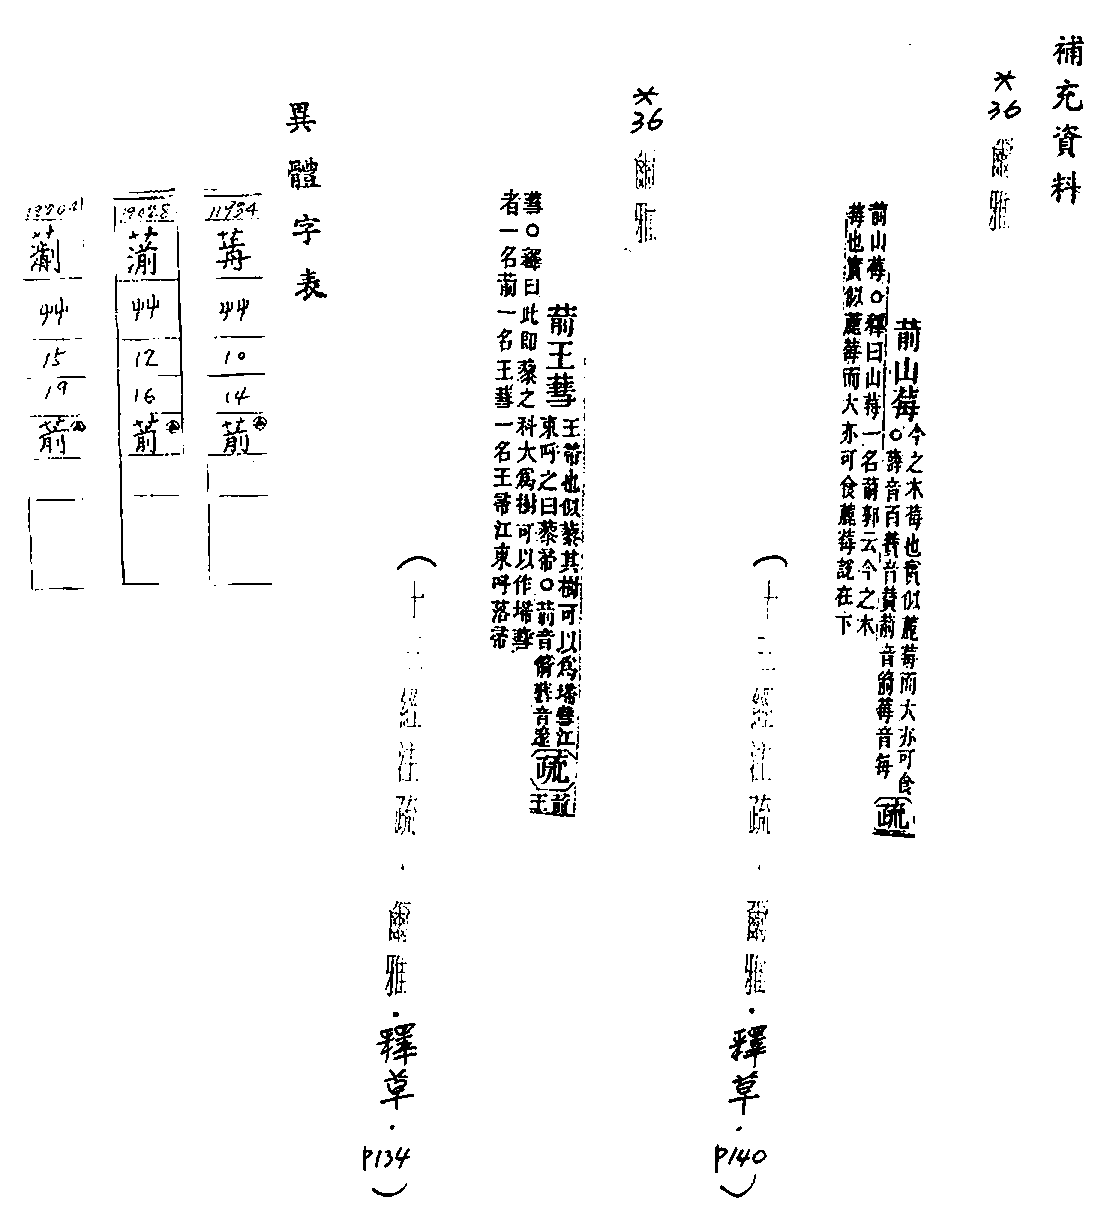 補充資料
*36 爾雅
葥山莓
今之木莓也實似藨莓而大亦可食
○葥音箭莓音每
疏
葥山莓○釋曰山莓一名葥郭云今之木
莓也實似藨莓而大亦可食藨莓說在下
(十三經注疏.爾雅.釋草.P140)
*36 爾雅
葥王蔧
王帚也似藜其樹可以為埽蔧江
東呼之曰落帚○葥音箭蔧音遂
疏
葥王
蔧○釋曰此即藜之科大為樹可以作埽蔧
者一名葥一名王蔧一名王帚江東呼落帚
(十三經注疏.爾雅.釋草.P134)
異體字表
11934
10
14
葥
12
16
葥
15
19
葥